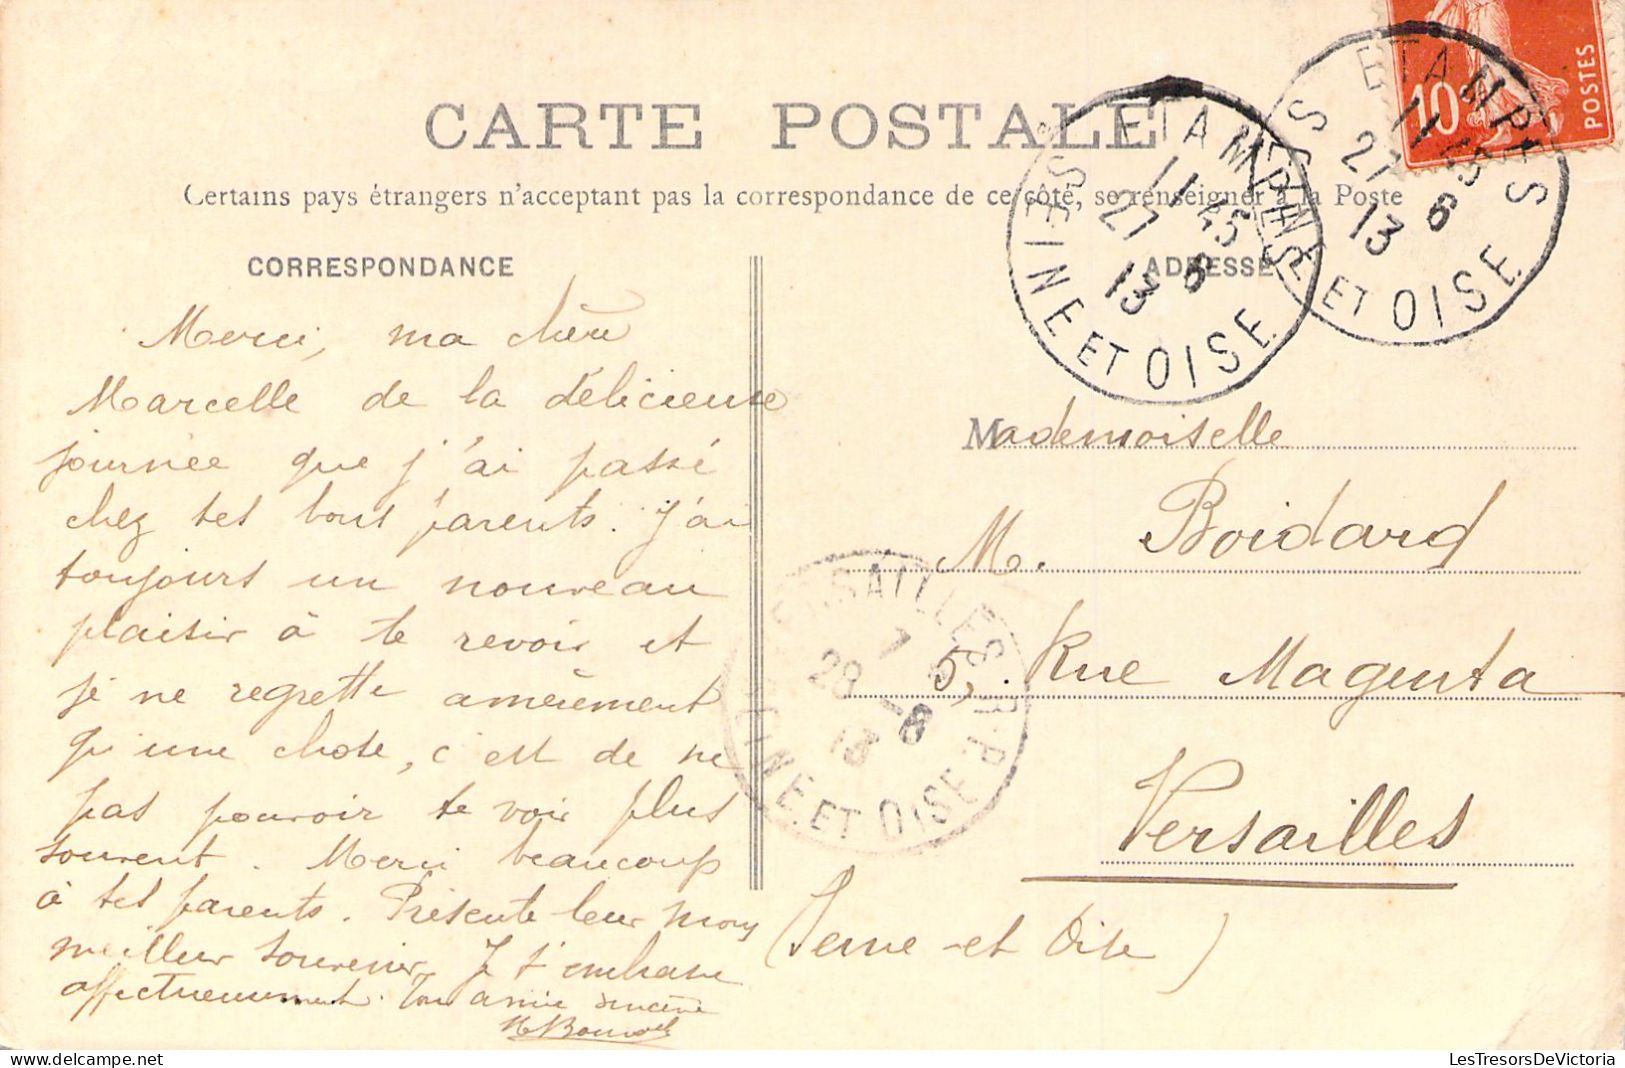 CARTE POSTALE
Certains pays étrangers n'acceptant pas la correspondance de ce côté, se renseigner à la Poste
CORRESPONDANCE
Merci, ma chère
Marcelle de la délicieuse
journée que j'ai passé
chez tes bons parents. J'ai
toujours un nouveau
plaisir à te revoir et
je ne regrette amèrement
qu'une chose, c'est de ne
pas pouvoir te voir plus
souvent. Merci beaucoup
à tes parents. Présente leur mon
meilleur souvenir. Je t'embrasse
affectueusement. Ton amie sincère
ADRESSE
Mademoiselle
M. Boidard
5, Rue Magenta
Versailles
(Seine et Oise)
10 POSTES
ETAMPES
11 45
27 6
13
SEINE ET OISE
ETAMPES
11 45
27 6
13
SEINE ET OISE
VERSAILLES R.P.
7
28 - 6
13
SEINE ET OISE
LesTresorsDeVictoria